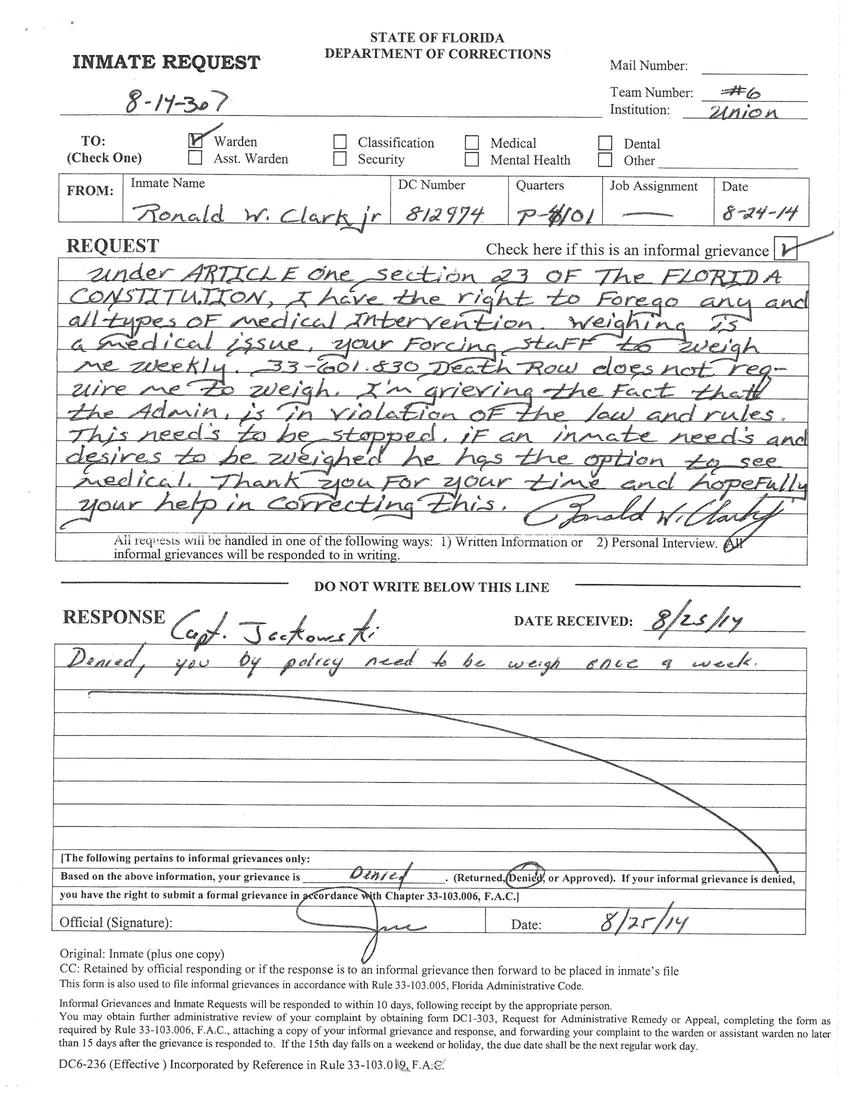 STATE OF FLORIDA
DEPARTMENT OF CORRECTIONS
INMATE REQUEST
Mail Number:
Team Number: #6
Institution: Union
8-14-307
TO: Warden Classification Medical Dental
(Check One) Asst. Warden Security Mental Health Other
FROM: Inmate Name DC Number Quarters Job Assignment Date
Ronald W. Clark jr 812974 P-4101 — 8-24-14
REQUEST Check here if this is an informal grievance
under ARTICLE One section 23 OF The FLORIDA
CONSTITUTION, I have the right to Forego any and
all types OF medical Intervention. Weighing is
a medical issue, your Forcing staFF to weigh
me weekly. 33-601.830 Death Row does not req-
uire me to weigh. I'm grieving the Fact that
the Admin, is in violation OF the law and rules.
This need's to be stopped, iF an inmate need's and
desires to be weighed he has the option to see
medical. Thank you For your time and hopeFully
your help in correcting this. Ronald W. Clark jr
All requests will be handled in one of the following ways: 1) Written Information or 2) Personal Interview. All
informal grievances will be responded to in writing.
DO NOT WRITE BELOW THIS LINE
RESPONSE Capt. Jackowski DATE RECEIVED: 8/25/14
Denied, you by policy need to be weigh once a week.
[The following pertains to informal grievances only:
Based on the above information, your grievance is Denied. (Returned, Denied, or Approved). If your informal grievance is denied,
you have the right to submit a formal grievance in accordance with Chapter 33-103.006, F.A.C.]
Official (Signature): Date: 8/25/14
Original: Inmate (plus one copy)
CC: Retained by official responding or if the response is to an informal grievance then forward to be placed in inmate's file
This form is also used to file informal grievances in accordance with Rule 33-103.005, Florida Administrative Code.
Informal Grievances and Inmate Requests will be responded to within 10 days, following receipt by the appropriate person.
You may obtain further administrative review of your complaint by obtaining form DC1-303, Request for Administrative Remedy or Appeal, completing the form as
required by Rule 33-103.006, F.A.C., attaching a copy of your informal grievance and response, and forwarding your complaint to the warden or assistant warden no later
than 15 days after the grievance is responded to. If the 15th day falls on a weekend or holiday, the due date shall be the next regular work day.
DC6-236 (Effective ) Incorporated by Reference in Rule 33-103.019, F.A.C.